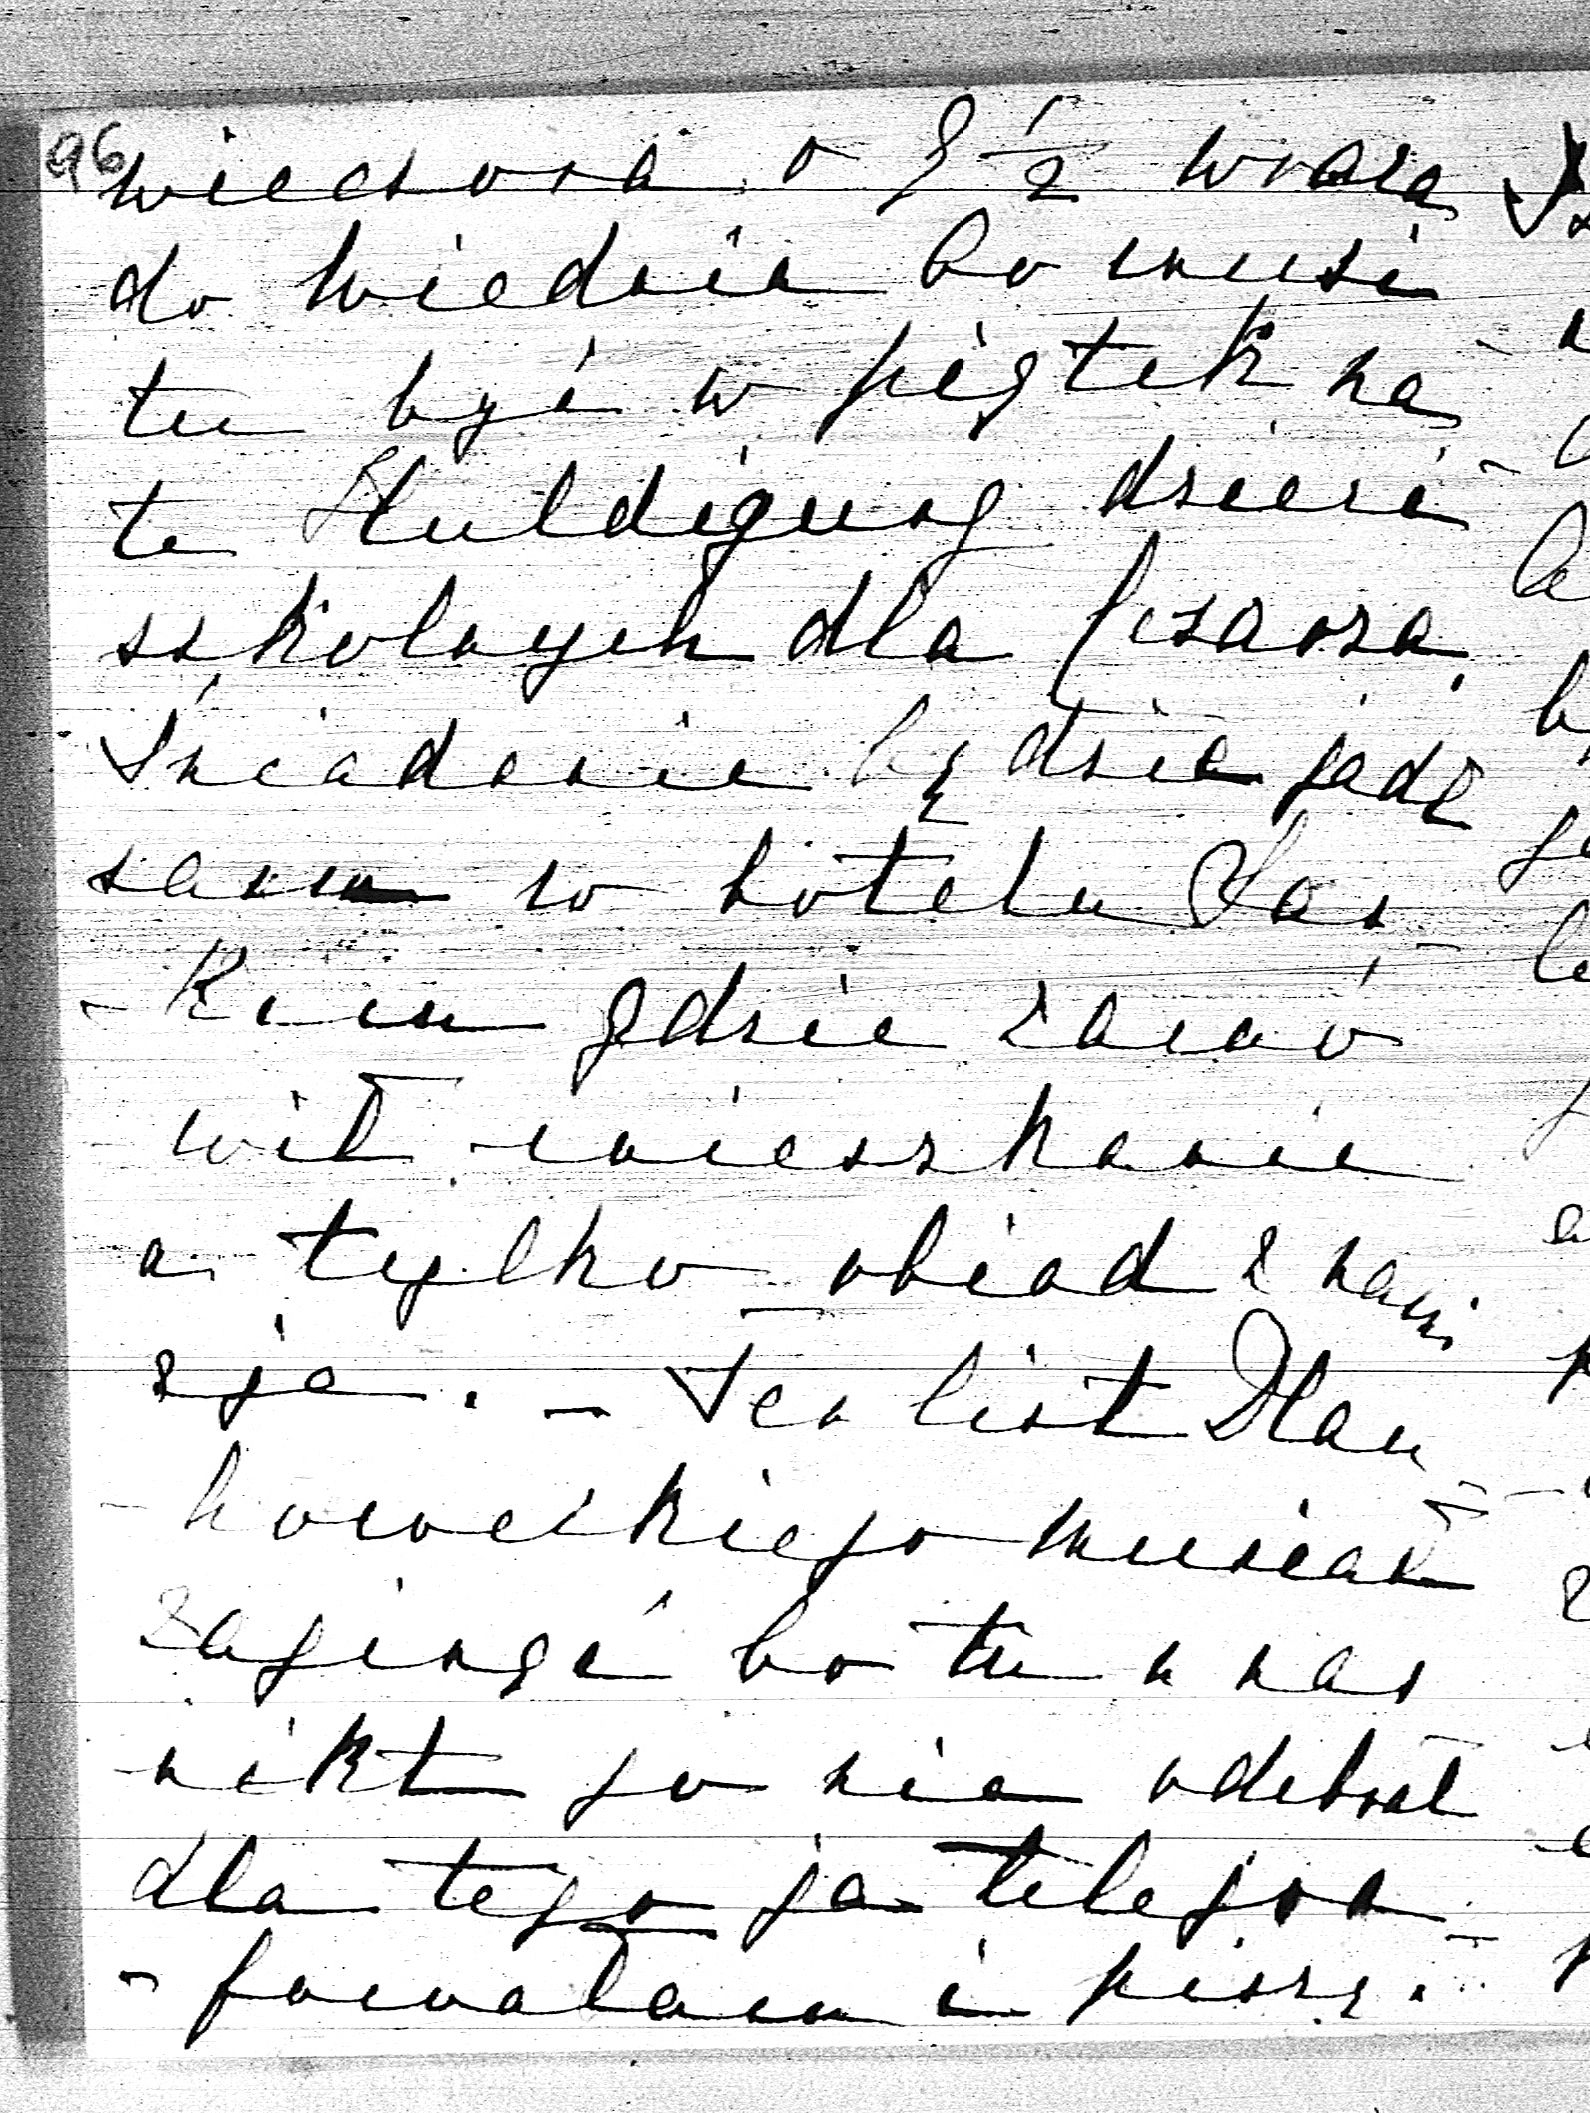 96
wieczora o 8 ½ wraca
do Wiednia bo musi
tu być w piątek na
te Huldigung dzieci
szkolnych dla Cesarza,
Śniadanie będzie jadł
sam w hotelu
-kim gdzie zamó
wił mieszkanie
a tylko obiad z nami
zje. - Ten list Dłau
howeckiego musiał
zaginąć bo tu u nas
nikt go nie odebrał
dla tego ja telegra
- fowałam i piszę. -